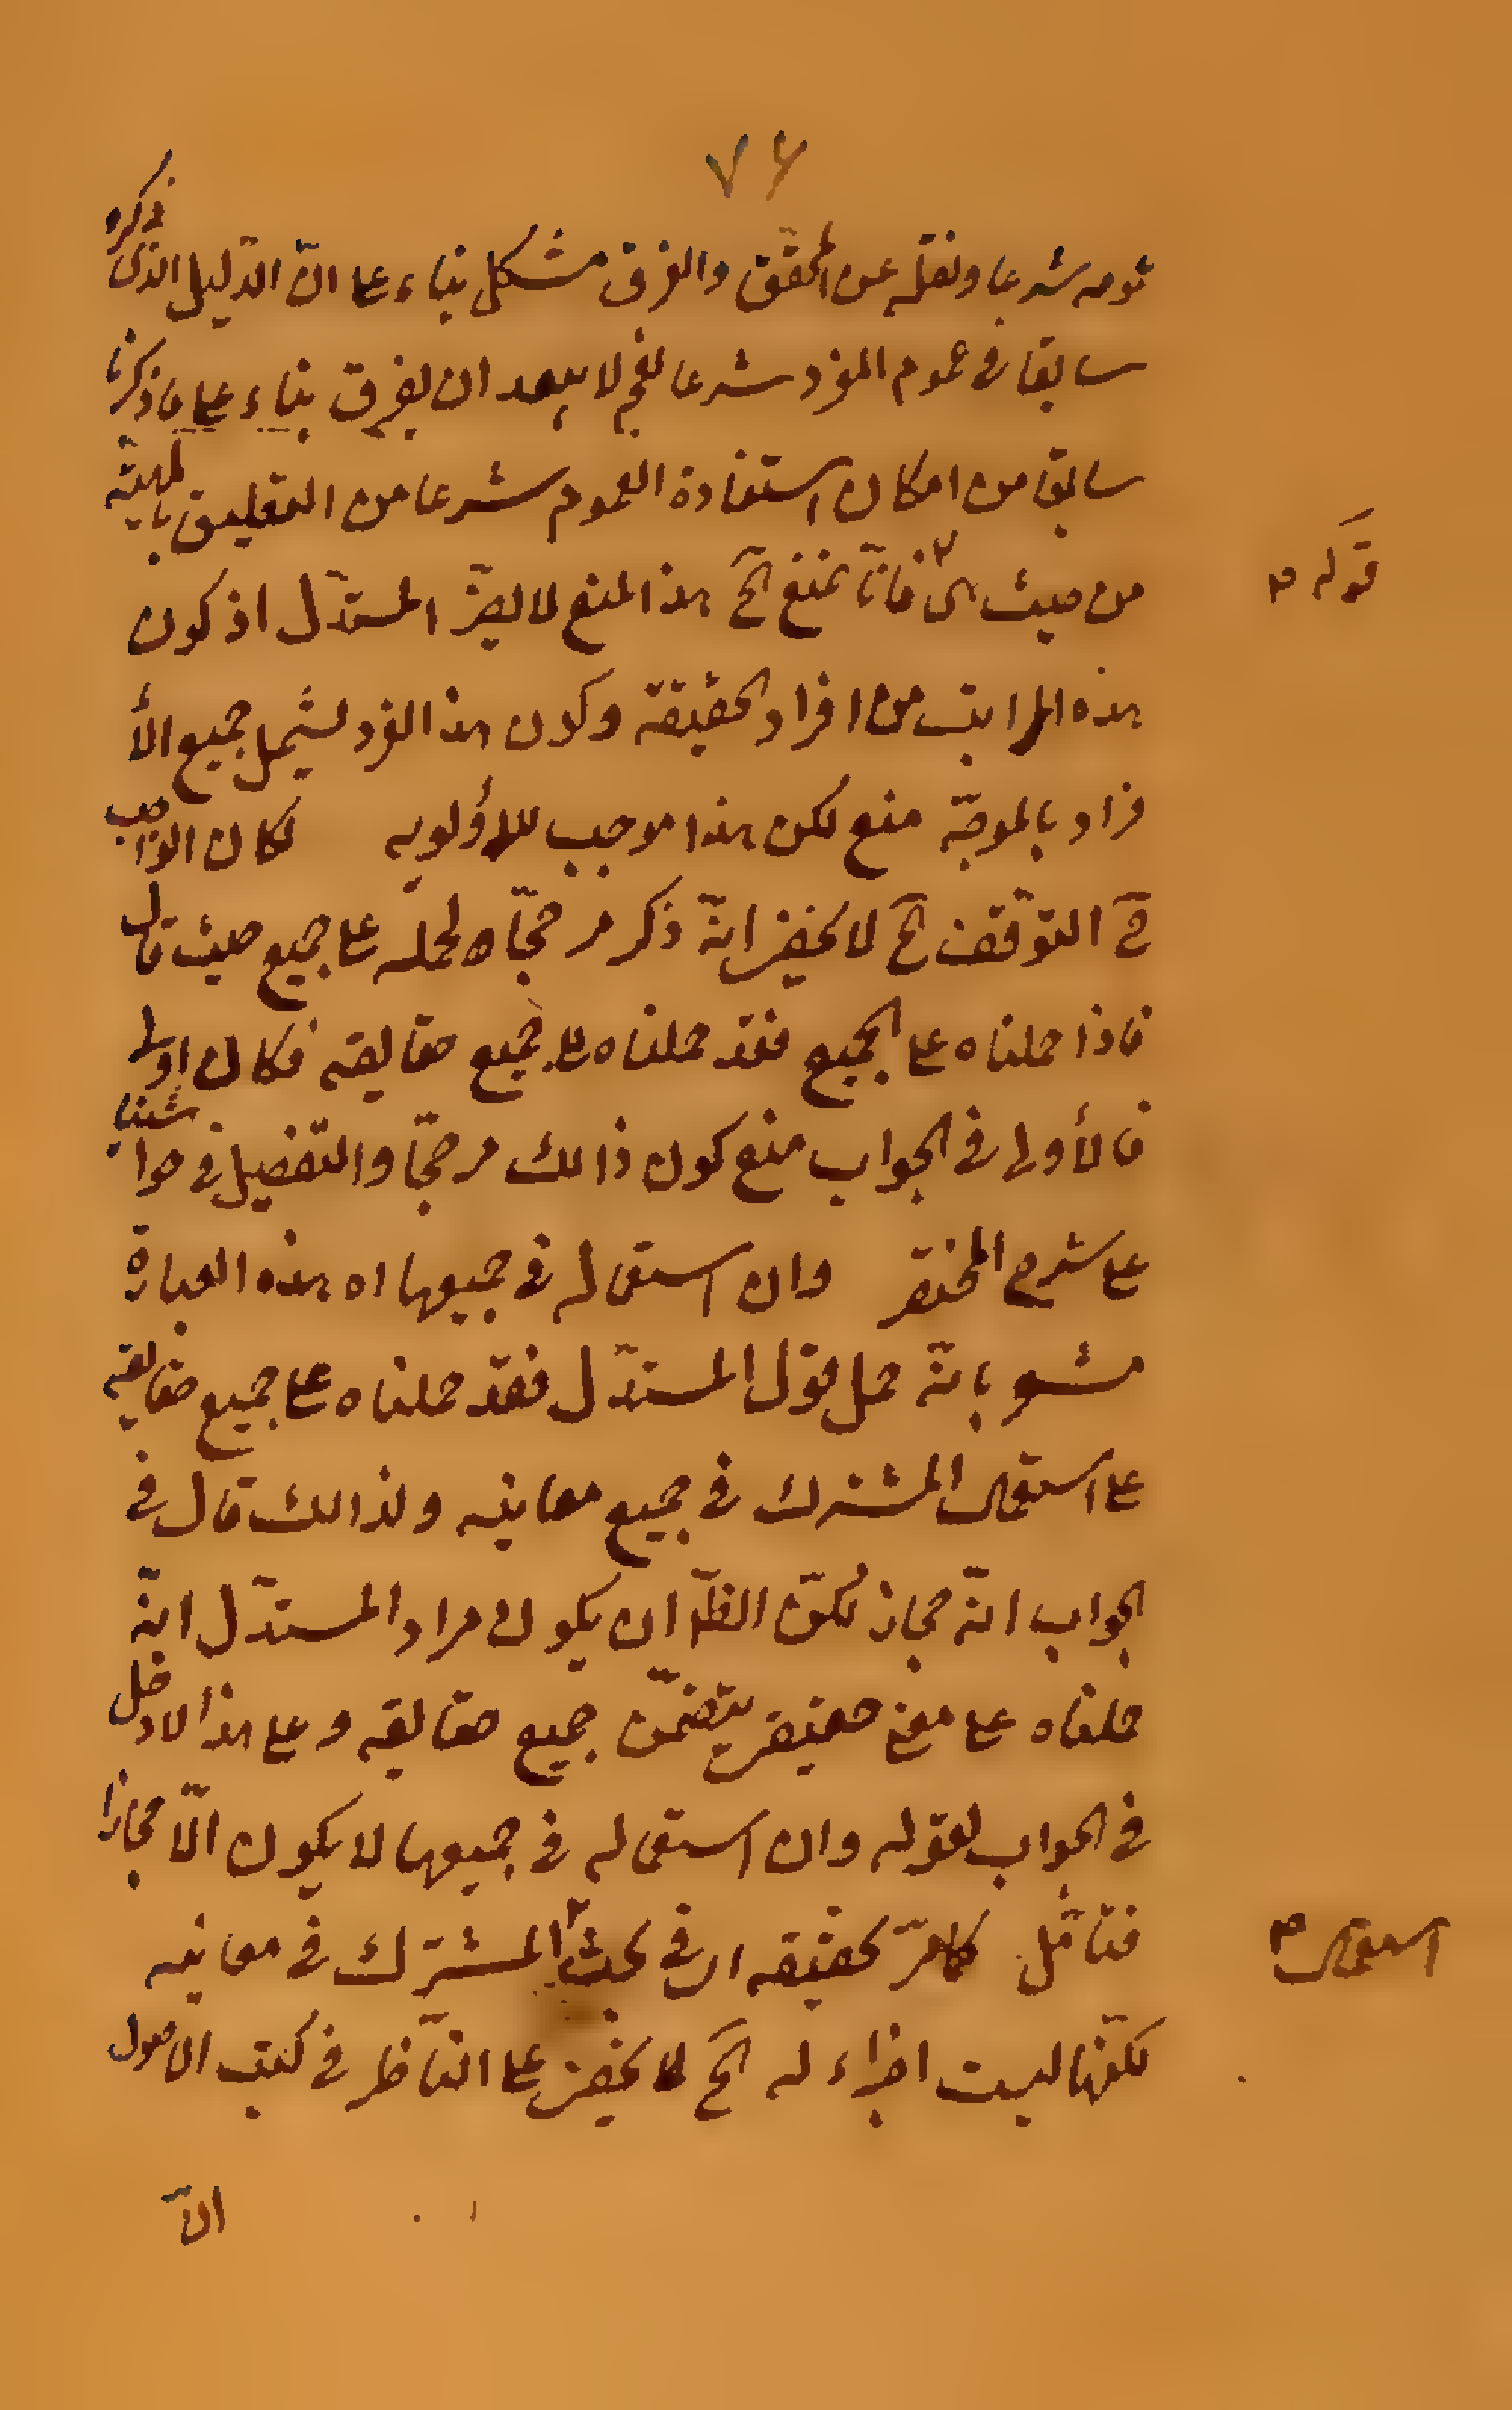 ٧٦
عمومه شرعا ونقله عن المحقق والفرق مشكل بناء على انّ الدّليل الذى ذكره
سابقا فى عموم المفرد شرعا نعم لا يبعد ان يفرق بناء على ما ذكرنا
سابقا من امكان استفادة العموم شرعا من التعليق بالمهيّة
من حيث هى فانّا نمنع الخ هذا المنع لا يضرّ المستدّل اذ كون
قوله م
هذه المراتب من افراد الحقيقة وكون هذا الفرد يشمل جميع الأ
فراد بالموجّه منع لكن هذا موجب للأولويه لكان الواجب
ح التوقّف الخ لا يخفى انّه ذكر مرجّحا لحمله على جميع حيث قال
فاذا حملناه على الجميع فقد حملناه على جميع حقايقه فكان اولى
فالأولى فى الجواب منع كون ذالك مرجّحا والتفصيل فى حواشينا
على شرح المختصر وان استعماله فى جميعها اه هذه العبارة
مشعر بانّه حمل قول المستدّل فقد حملناه على جميع حقايقه
على استعمال المشترك فى جميع معانيه ولذالك قال فى
الجواب انّه مجاز لكنّ الظّ ان يكون مراد المستدّل انّه
حملناه على معنى حقيقى يتضمّن جميع حقايقه وعلى هذا لا دخل
فى الجواب لقوله وان استعماله فى جميعها لا يكون الّا مجازا
فتامّل كما مرّ تحقيقه اى فى بحث المشترك فى معانيه
استعمال م
لكنّها ليست اجزاء له الخ لا يخفى على النّاظر فى كتب الاصول
انّ